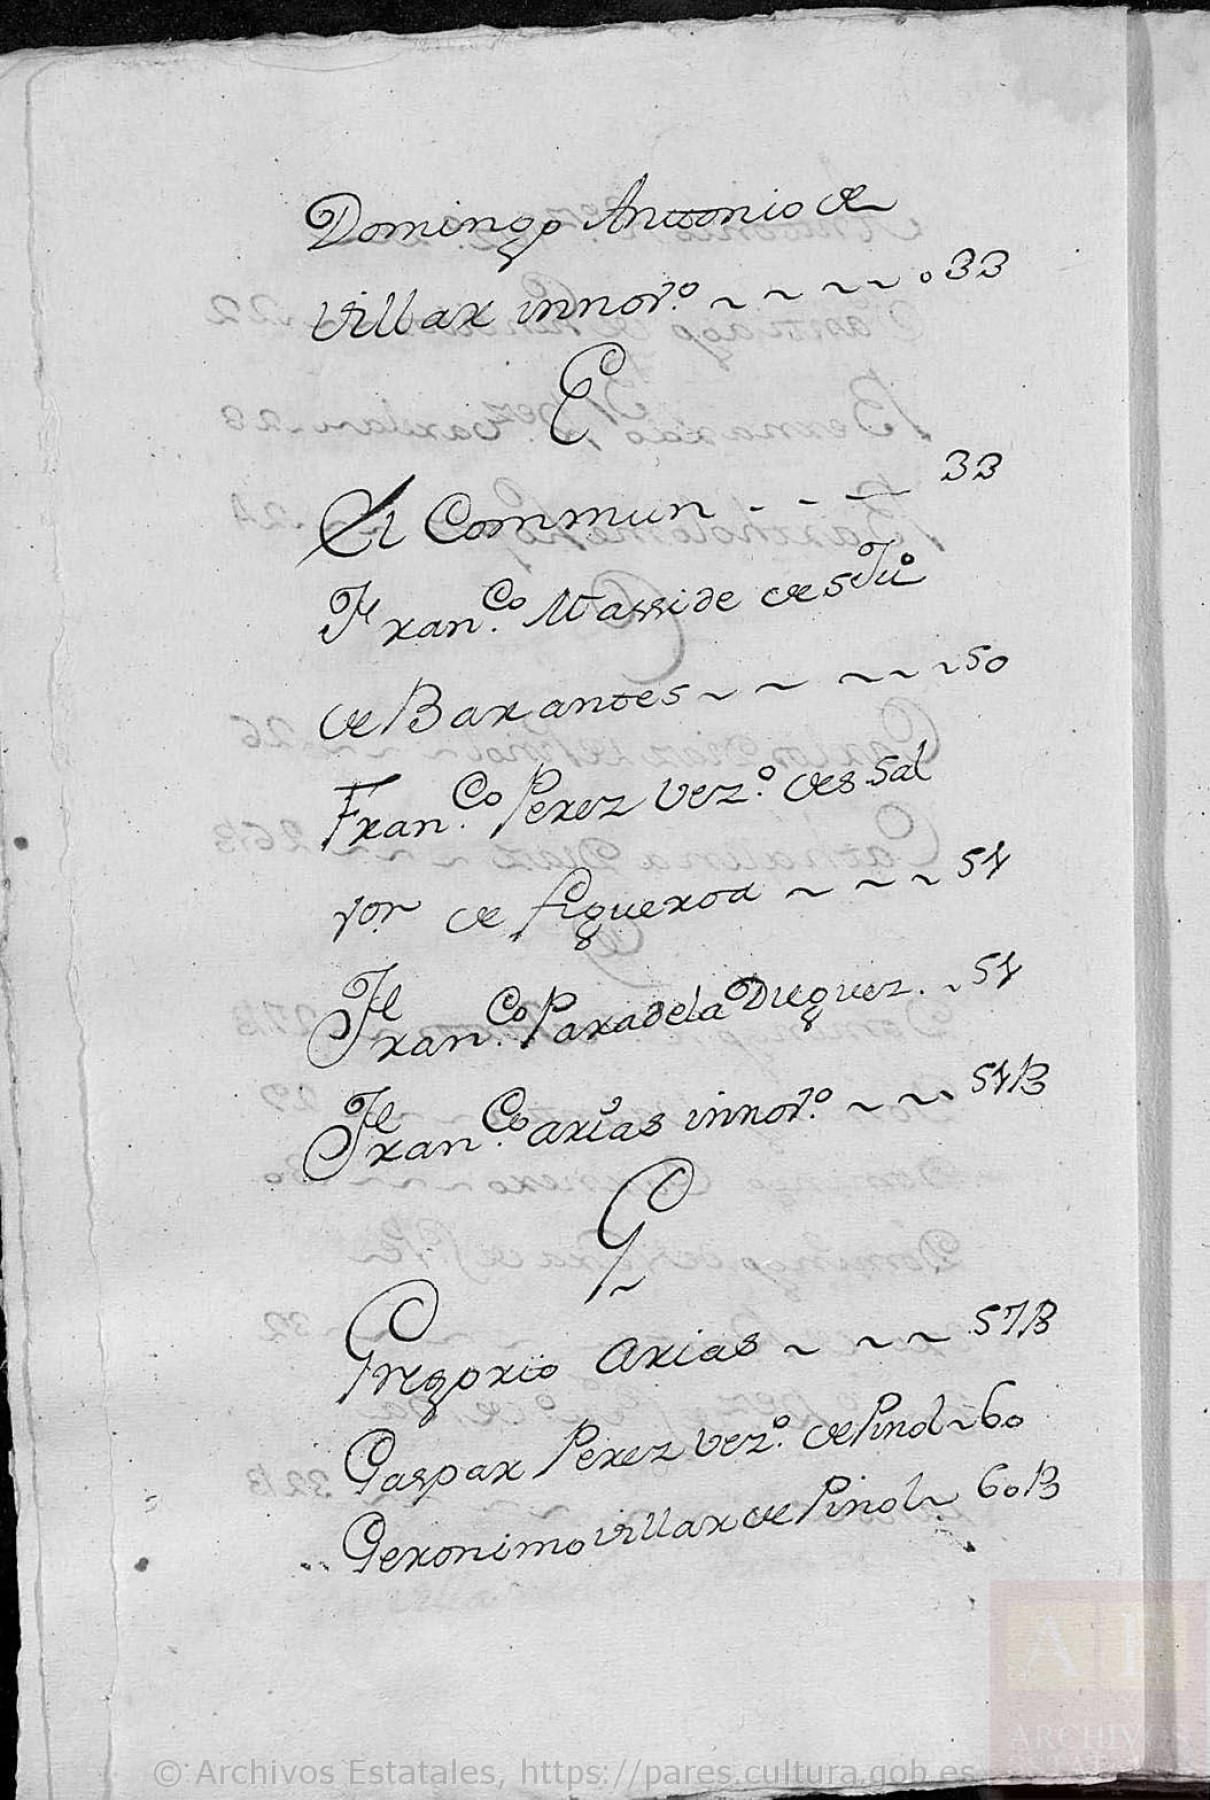 Domingo Antonio de
Villar innor.º ~ ~ ~ ~ . 33
E
El Commun - - — 33
Fran.co Masside de S Juº
de Barantes ~ ~ ~ ~ ~ 50
Fran.co Perez vez.º de S Sal
vor de figueroa ~ ~ ~ ~ 51
Fran.co Paradela Dieguez . ~ 51
Fran.co arias innor.º ~ ~ . 51B
G
Gregorio Arias ~ ~ ~ ~ 57B
Gaspar Perez vez.º de Pinol ~ 60
Geronimo villar de Pinol ~ 60B
AE
ARCHIVOS
ESTATALES
© Archivos Estatales, https://pares.cultura.gob.es